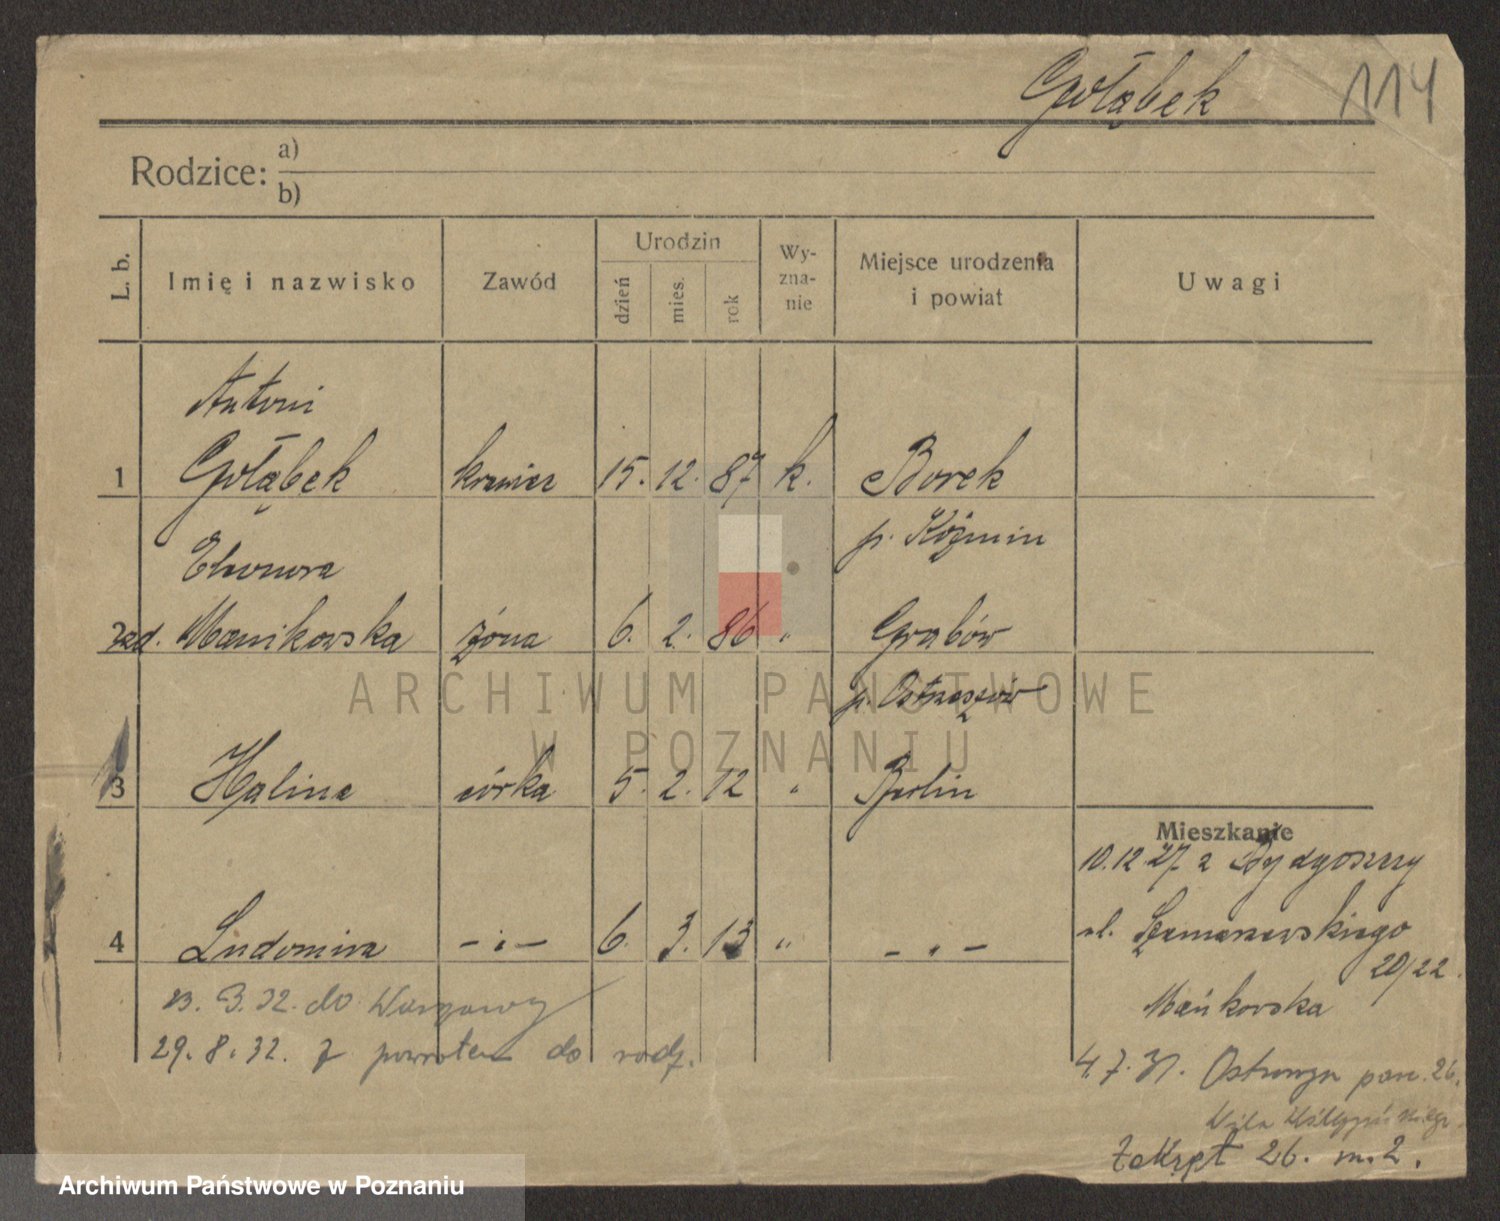 Gołąbek 114
Rodzice: a)
b)
L. b. Imię i nazwisko Zawód Urodzin dzień mies. rok Wy-zna-nie Miejsce urodzenia i powiat Uwagi
Antoni
1 Gołąbek krawiec 15. 12. 87 k. Borek
p. Koźmin
Eleonora
2 zd. Mańkowska żona 6. 2. 86 " Grabów
p. Ostrzeszów
3 Halina córka 5. 2. 12 " Berlin
Mieszkanie
10.12.27 z Bydgoszczy
4 Ludomira - " - 6. 3. 13 " - " - ul. Szamarzewskiego
20/22.
13. 3. 32. do Warszawy
Mańkowska
29. 8. 32. z powrotem do rodz.
4. 7. 31. par. 26.
Zakręt 26. m. 2.
ARCHIWUM PAŃSTWOWE
W POZNANIU
Archiwum Państwowe w Poznaniu